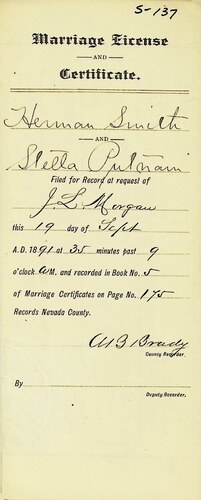 S-137
Marriage License
AND
Certificate.
Herman Smith
AND
Stella Putnam
Filed for Record at request of
J L Morgan
this 19 day of Sept
A.D. 1891 at 35 minutes past 9
o'clock AM, and recorded in Book No. 5
of Marriage Certificates on Page No. 175
Records Nevada County.
County Recorder.
By
Deputy Recorder.